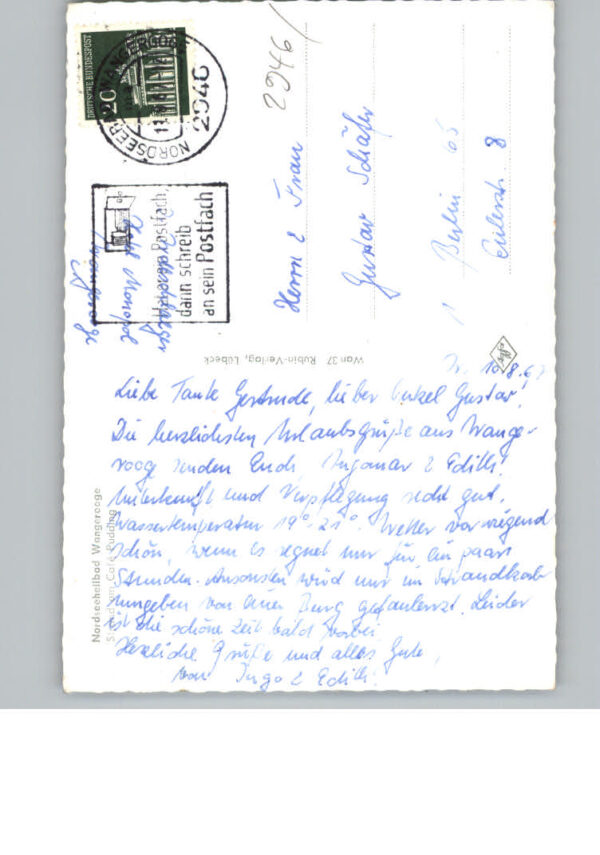 2946/
DEUTSCHE BUNDESPOST
20
NORDSEEBAD WANGEROOGE
2946
Hat er ein Postfach,
dann schreib
an sein Postfach
Hotel Monopol
Wangerooge
Herrn & Frau
Gustav Schäfer
1 Berlin 65
Eulerstr. 8
Wan 37 Rubin-Verlag, Lübeck
Nordseeheilbad Wangerooge
Strand am Café Pudding
W. 10.8.67
Liebe Tante Gertrude, lieber Onkel Gustav!
Die herzlichsten Urlaubsgrüße aus Wange-
rooge senden Euch Ingomar & Edith!
Unterkunft und Verpflegung recht gut,
Wassertemperatur 19°-21°. Wetter vorwiegend
schön, wenn es regnet nur für ein paar
Stunden. Ansonsten wird nur im Strandkorb
umgeben von einer Burg gefaulenzt. Leider
ist die schöne Zeit bald vorbei.
Herzliche Grüße und alles Gute,
von Ingo & Edith!